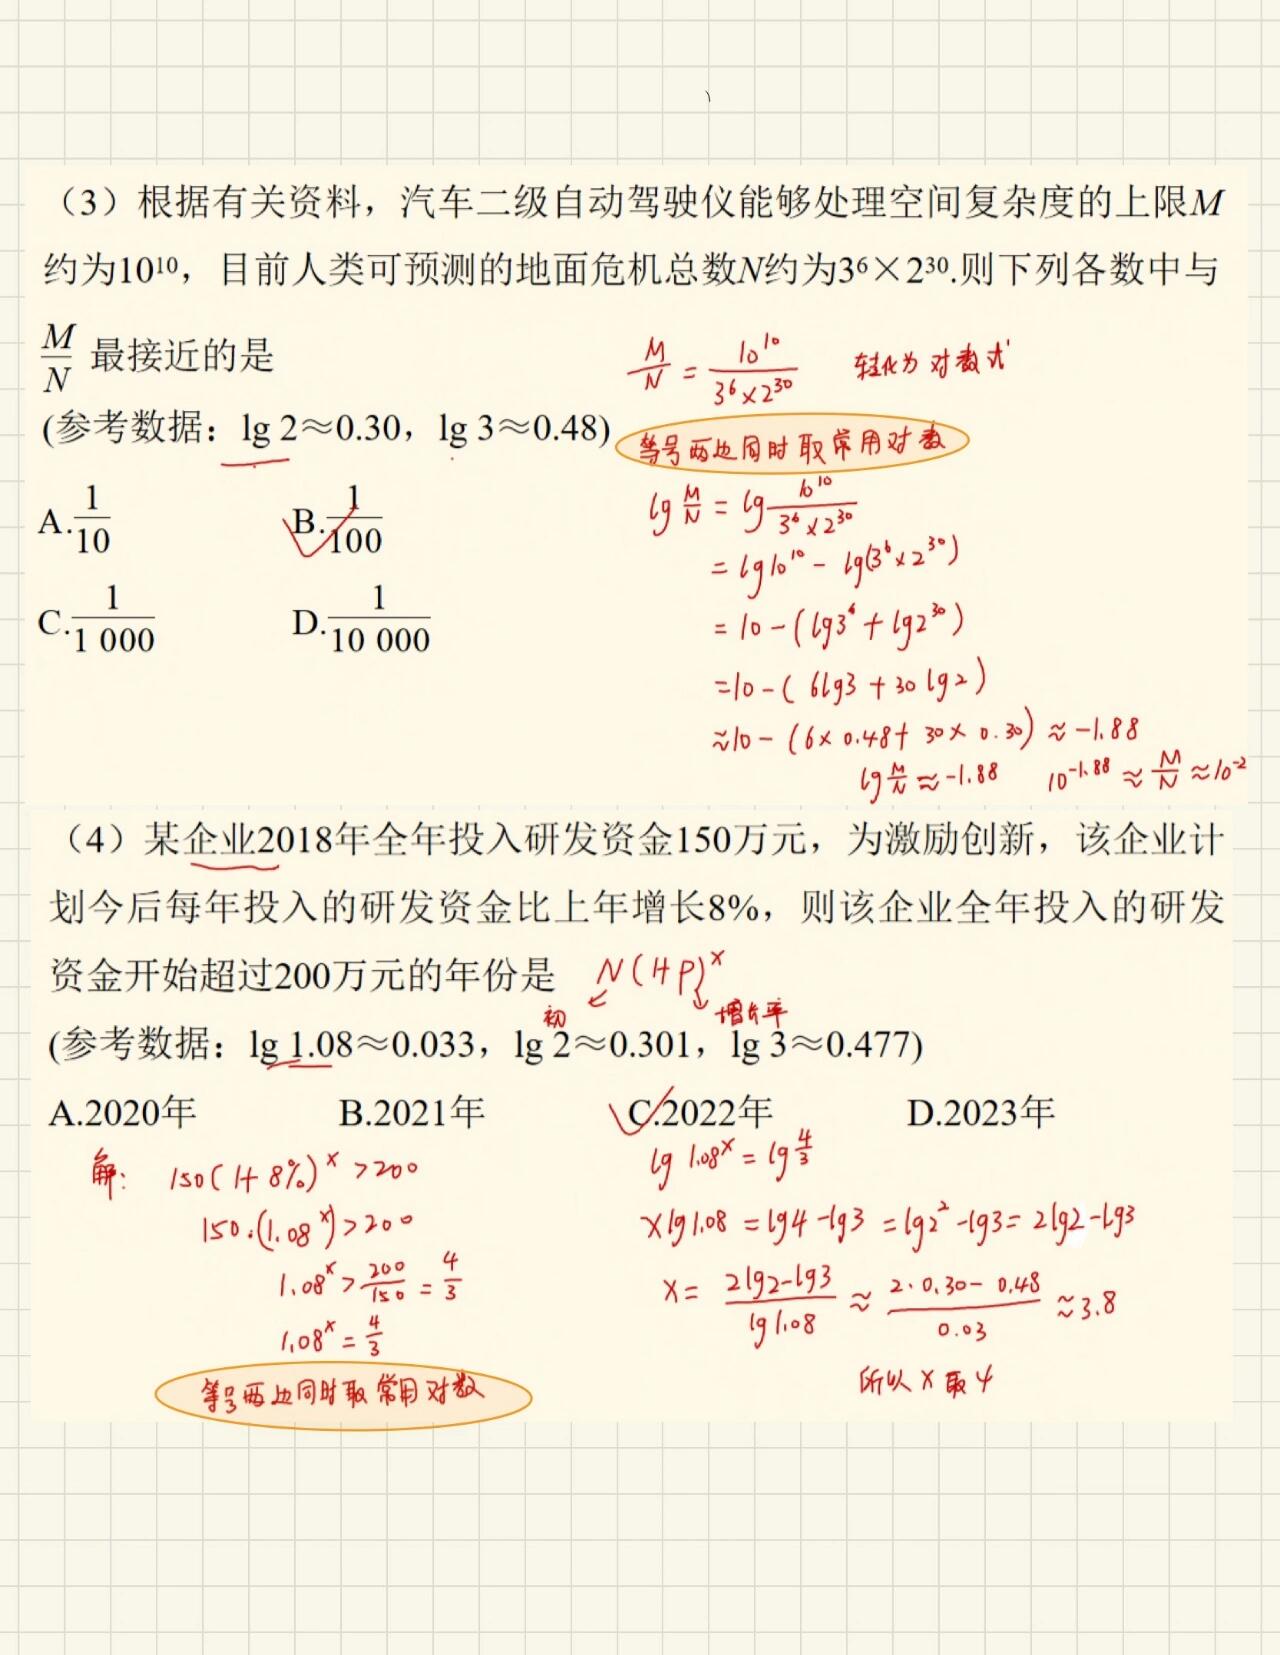 （3）根据有关资料，汽车二级自动驾驶仪能够处理空间复杂度的上限M
约为10¹⁰，目前人类可预测的地面危机总数N约为3⁶×2³⁰.则下列各数中与
M/N 最接近的是
M/N = 10¹⁰/(3⁶×2³⁰) 转化为对数式
(参考数据：lg 2≈0.30，lg 3≈0.48)
等号两边同时取常用对数
A.1/10 B.1/100
C.1/1 000 D.1/10 000
lg M/N = lg 10¹⁰/(3⁶×2³⁰)
= lg10¹⁰ - lg(3⁶×2³⁰)
= 10-(lg3⁶+lg2³⁰)
=10-(6lg3+30lg2)
≈10-(6×0.48+30×0.30)≈-1.88
lg M/N ≈-1.88 10⁻¹·⁸⁸≈M/N≈10⁻²
（4）某企业2018年全年投入研发资金150万元，为激励创新，该企业计
划今后每年投入的研发资金比上年增长8%，则该企业全年投入的研发
资金开始超过200万元的年份是 N(1+p)ˣ
初 增长率
(参考数据：lg 1.08≈0.033，lg 2≈0.301，lg 3≈0.477)
A.2020年 B.2021年 C.2022年 D.2023年
解: 150(1+8%)ˣ>200
150·(1.08ˣ)>200
1.08ˣ>200/150=4/3
1.08ˣ=4/3
等号两边同时取常用对数
lg 1.08ˣ=lg 4/3
xlg1.08 =lg4-lg3 =lg2²-lg3=2lg2-lg3
x= (2lg2-lg3)/lg1.08 ≈ (2·0.30-0.48)/0.03 ≈3.8
所以x取4